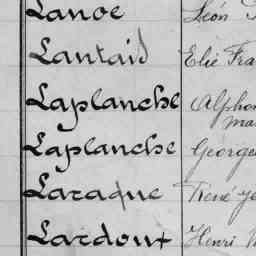 Lanoe Léon
Lantaid Elie Fra
Laplanche Alphon
Ma
Laplanche George
Laraque René
Lardout Henri